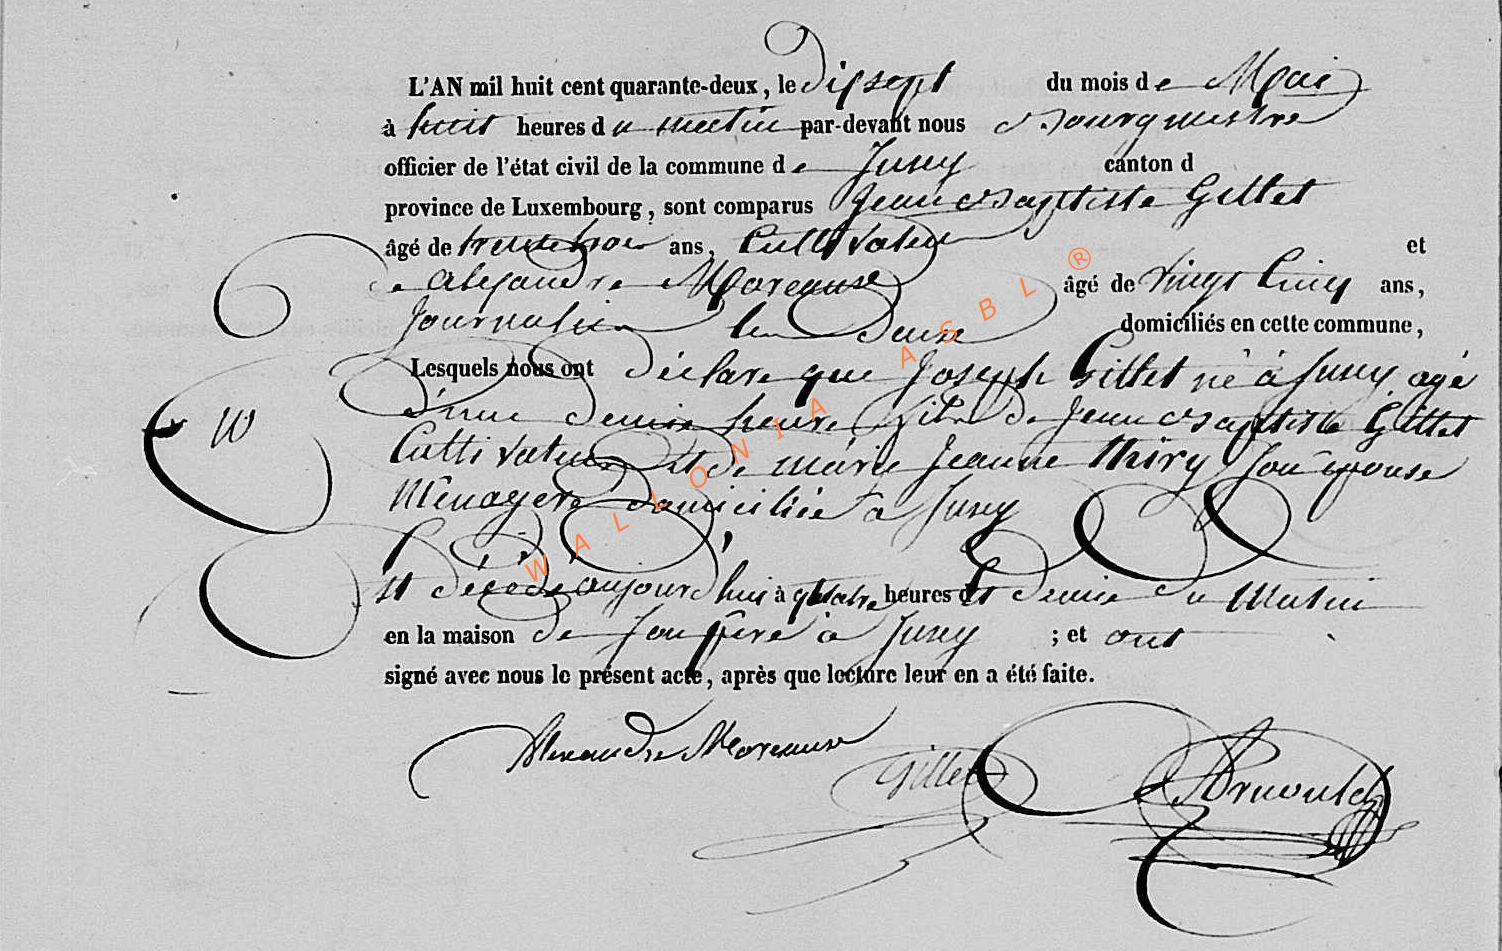 L'AN mil huit cent quarante-deux, le dix sept du mois de Mai
à huit heures du matin par-devant nous Bourgmestre
officier de l'état civil de la commune de Juzey canton d
province de Luxembourg, sont comparus Jean Baptiste Gillet
âgé de trente trois ans, Cultivateur et
de Alexandre Moreaux âgé de vingt Cinq ans,
Journalier les Deux domiciliés en cette commune,
Lesquels nous ont déclaré que Joseph Gillet né à Juzey agé
d'une demie heure fils de Jean Baptiste Gillet
Cultivateur et de márie Jeanne thiry son epouse
Ménagere domiciliée a Juzey
W
est décédé aujourd'hui à quatre heures et demie du Matin
en la maison de son pére à Juzey ; et ont
signé avec nous le présent acte, après que lecture leur en a été faite.
Alexandre Moreaux Gillet Arnould
WALLONIA ASBL ®